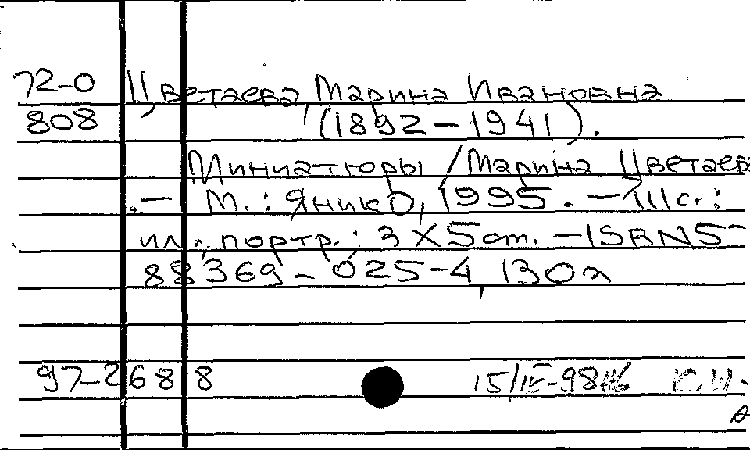 72-0 Цветаева, Марина Ивановна
808 (1892-1941).
Миниатюры / Марина Цветаев
.- М.: Янико, 1995. - 111с.:
ил., портр.; 3X5 cm. - ISBN 5-
88369-025-4, 130
97-2688 15/IV-98